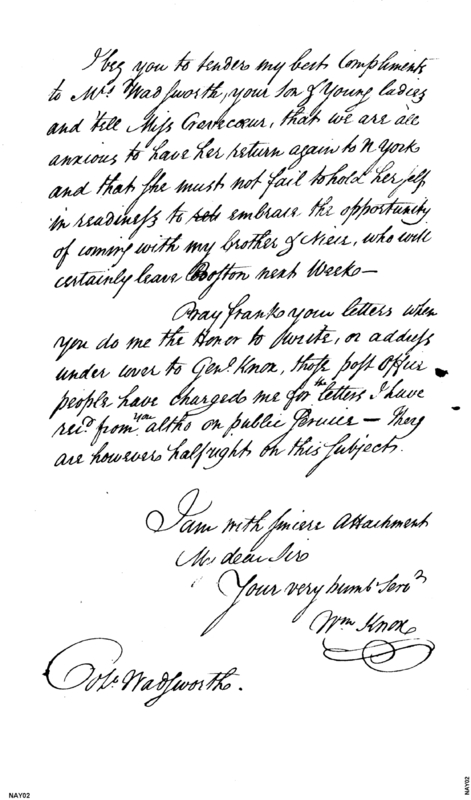 I beg you to tender my best Compliments
to Mrs. Wadsworth, your son & Young ladies
and tell Miss Crevecœur, that we are all
anxious to have her return again to N York
and that she must not fail to hold her self
in readiness to embrace the opportunity
of coming with my brother & Niece, who will
certainly leave Boston next Week—
Pray frank your letters when
you do me the Honor to write, or address
under cover to Genl. Knox, those post Office
people have charged me for the letters I have
recd. from you altho on public Service — They
are however half right on this subject.
I am with sincere Attachment
My dear Sir
Your very humb Servt
Wm Knox
Colo. Wadsworth.
NAY02
NAY02